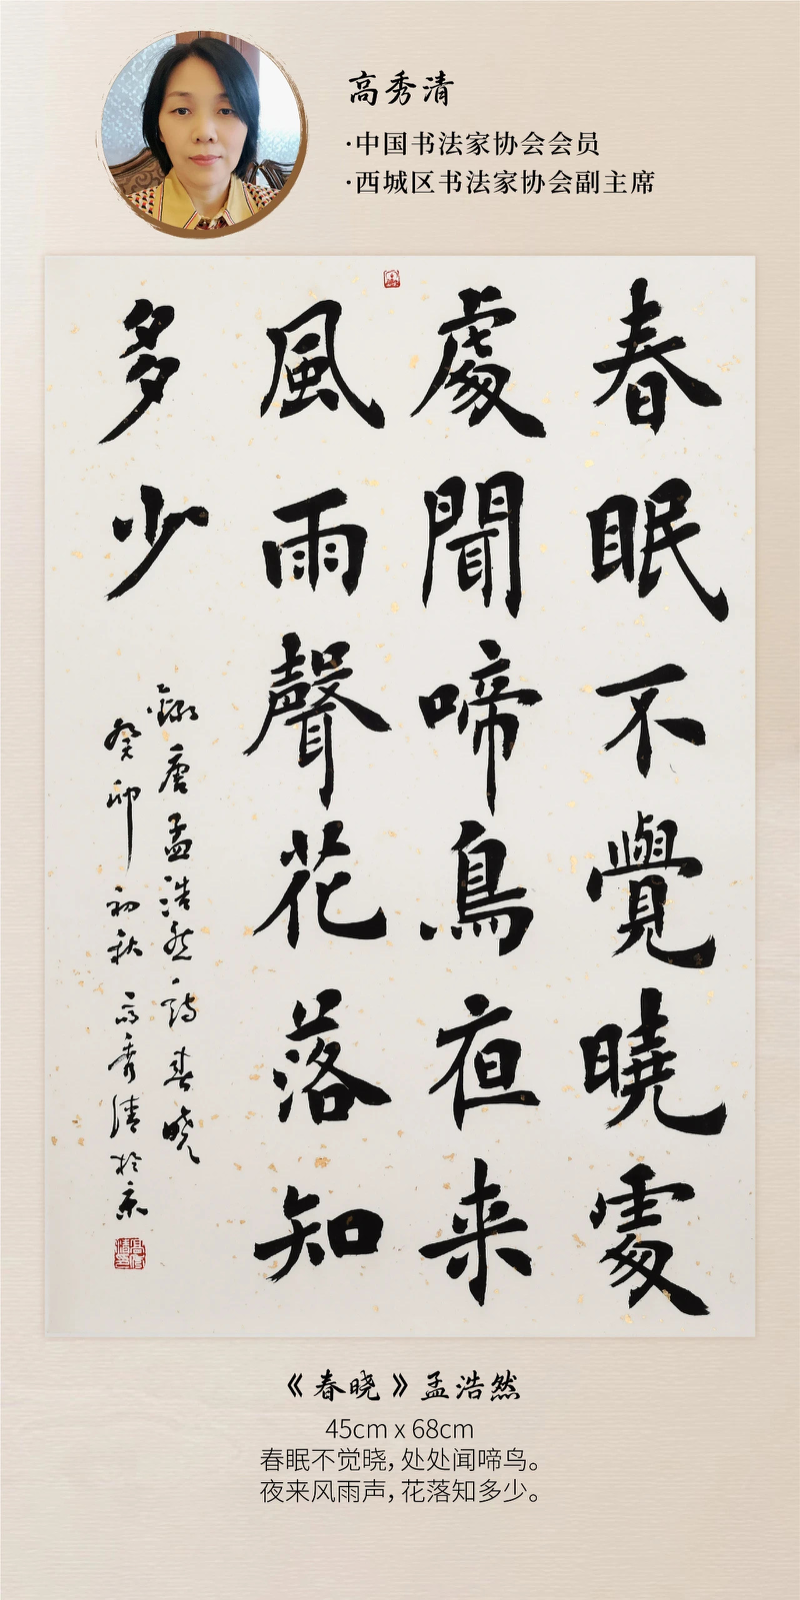 高秀清
·中国书法家协会会员
·西城区书法家协会副主席
春眠不覺曉處
處聞啼鳥夜来
風雨聲花落知
多少
錄唐孟浩然诗春晓
癸卯初秋高秀清於京
《春晓》孟浩然
45cm x 68cm
春眠不觉晓，处处闻啼鸟。
夜来风雨声，花落知多少。